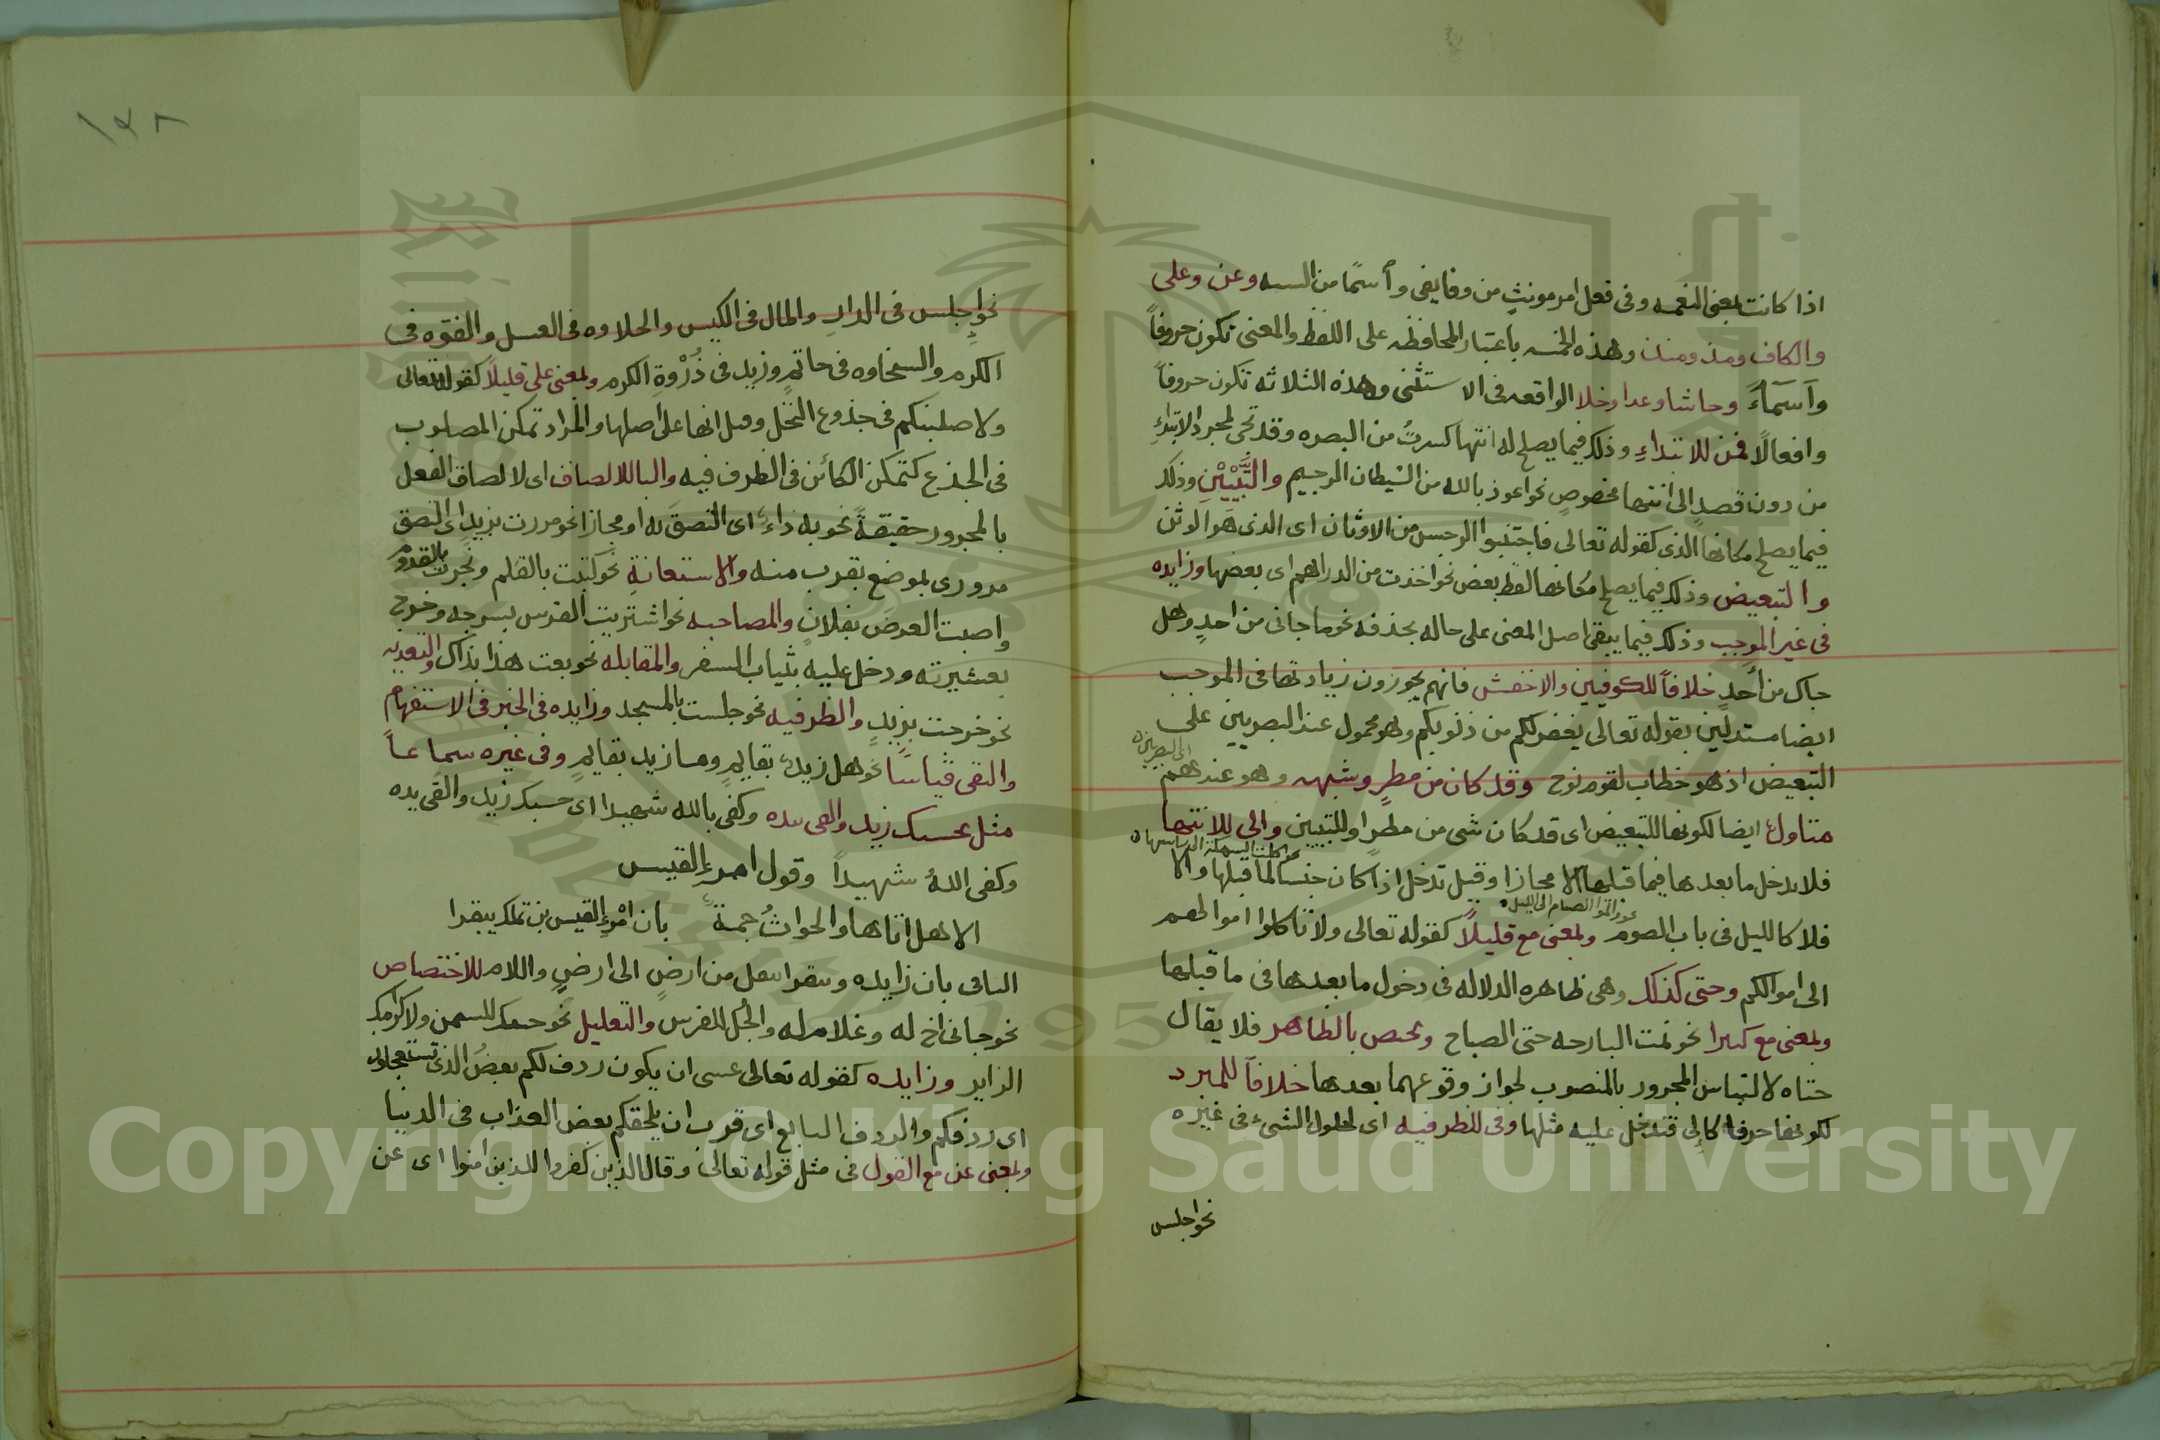 اذا كانت بمعنى النعمه وفى فعل امر مونثٍ من وفا يفى وأسمًا من السه وعن وعلى
والكاف ومذ ومنذ وهذه الخمسه باعتبار المحافظه على اللفظ والمعنى تكون حروفاً
وآسمآءً وحاشا وعدا وخلا الواقعه فى الاستثنى وهذه الثلاثه تكون حروفاً
وافعالًا فمن للابتداءِ وذلك فيما يصلح له انتها كسرتُ من البصره وقد تجى لمجرد الابتداءِ
من دون قصدٍ الى انتها مخصوصٍ نحو اعوذ بالله من الشيطان الرجيم والتَّبْيِيْنِ وذلك
فيما يصلح مكانها الذى كقوله تعالى فاجتنبوا الرجس من الاوثان اى الذى هو الوثن
والتبعيض وذلك فيما يصلح مكانها لفظ بعض نحو اخذت من الدراهم اى بعضها وزايده
فى غير الموجب وذلك فيما يبقى اصل المعنى على حاله بحذفه نحو ما جانى من احدٍ وهل
جاك من أحدٍ خلافاً للكوفيين والاخفش فانهم يجوزون زيادتها فى الموجب
ايضا مستدلين بقوله تعالى يغفر لكم من ذنوبكم وهو محمول عند البصريين على
التبعيض اذ هو خطاب لقوم نوح وقد كان من مطرٍ وشبهه وهو عندهم
اى البصريين
متاول ايضا لكونها للتبعيض اى قد كان شى من مطرٍ او للتبيين والى للانتها
فلا يدخل ما بعدها فيما قبلها الا مجازا وقيل تدخل اذا كان جنسا لما قبلها والا
نحو اكلت السمكة الى راسها
فلا كالليل فى باب الصوم وبمعنى مع قليلاً كقوله تعالى ولا تاكلوا اموالهم
نحو اتموا الصيام الى الليل
الى اموالكم وحتى كذلك وهى ظاهره الدلاله فى دخول ما بعدها فى ما قبلها
وبمعنى مع كثيرا نحو نمت البارحه حتى الصباح وتختص بالظاهر فلا يقال
حتاه لالتباس المجرور بالمنصوب لجواز وقوعهما بعدها خلافاً للمبرد
لكونها حرفا كالى فتدخل عليه مثلها وفى للظرفيه اى لحلول الشىء فى غيره
نحو اجلس
١٤٦
نحو اجلس فى الدار والمال فى الكيس والحلاوه فى العسل والقوه فى
الكرم والسخاوه فى حاتمٍ وزيد فى ذُرْوةِ الكرم وبمعنى على قليلاً كقوله تعالى
ولاصلبنكم فى جذوع النخل وقيل انها على اصلها والمراد تمكن المصلوب
فى الجذع كتمكن الكائن فى الظرف فيه والبا للالصاق اى لالصاق الفعل
بالمجرور حقيقةً نحو به داءٌ اى التصق به او مجازا نحو مررت بزيد اى التصق
مرورى بموضع يقرب منه والاستعانةِ نحو كتبت بالقلم ونجرت بالقدوم
واصبت الغرض بفلانٍ والمصاحبه نحو اشتريت الفرس بسرجه وخرج
بعشيرته ودخل عليه بثياب السفر والمقابله نحو بعت هذا بذاك والتعديه
نحو خرجت بزيدٍ والظرفيه نحو جلست بالمسجد وزايده فى الخبر فى الاستفهام
والنفى قياسًا نحو هل زيدٌ بقايمٍ وما زيد بقايمٍ وفى غيره سماعاً
مثل بحسبك زيد والقى بيده وكفى بالله شهيدا اى حسبك زيد والقى يده
وكفى اللهُ شهيداً وقول امرءِ القيس
الا هل اتاها والحوادثُ جمةٌ بان امْرءَ القيس بن تملك بيقرا
البا فى بان زايده وبيقر انتقل من ارضٍ الى ارضٍ واللام للاختصاص
نحو جانى اخ له وغلام له والجُل للفرس والتعليل نحو جئتك للسمن ولاكرامك
الزاير وزايده كقوله تعالى عسى ان يكون ردف لكم بعضُ الذى تستعجلون
اى ردفكم والردف التابع اى قرب ان يلحقكم بعض العذاب فى الدنيا
وبمعنى عن مع القول فى مثل قوله تعالى وقال الذين كفروا للذين امنوا اى عن
Copyright © King Saud University
1957